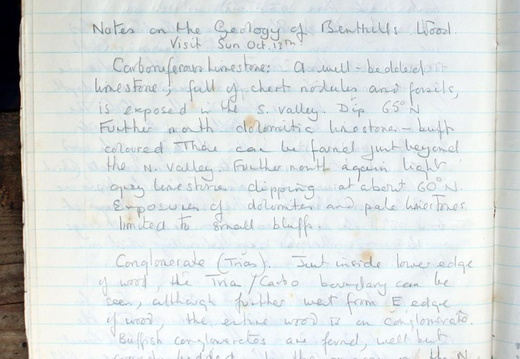 Notes on the Geology of Benthills Wood.
Visit Sun Oct. 13th
Carboniferous Limestone: A well-bedded
limestone, full of chert nodules and fossils,
is exposed in the S. Valley. Dip 65°N
Further north dolomitic limestone - buff
coloured there can be found just beyond
the N. Valley. Further north again light
grey limestone dipping at about 60°N.
Exposures of dolomites and pale limestones
limited to small bluffs.
Conglomerate (Trias). Just inside lower edge
of wood, the Trias/Carbo boundary can be
seen, although further west from E edge
of wood, the entire wood is on conglomerate.
Buffish conglomerates are found, well but
bedded the N